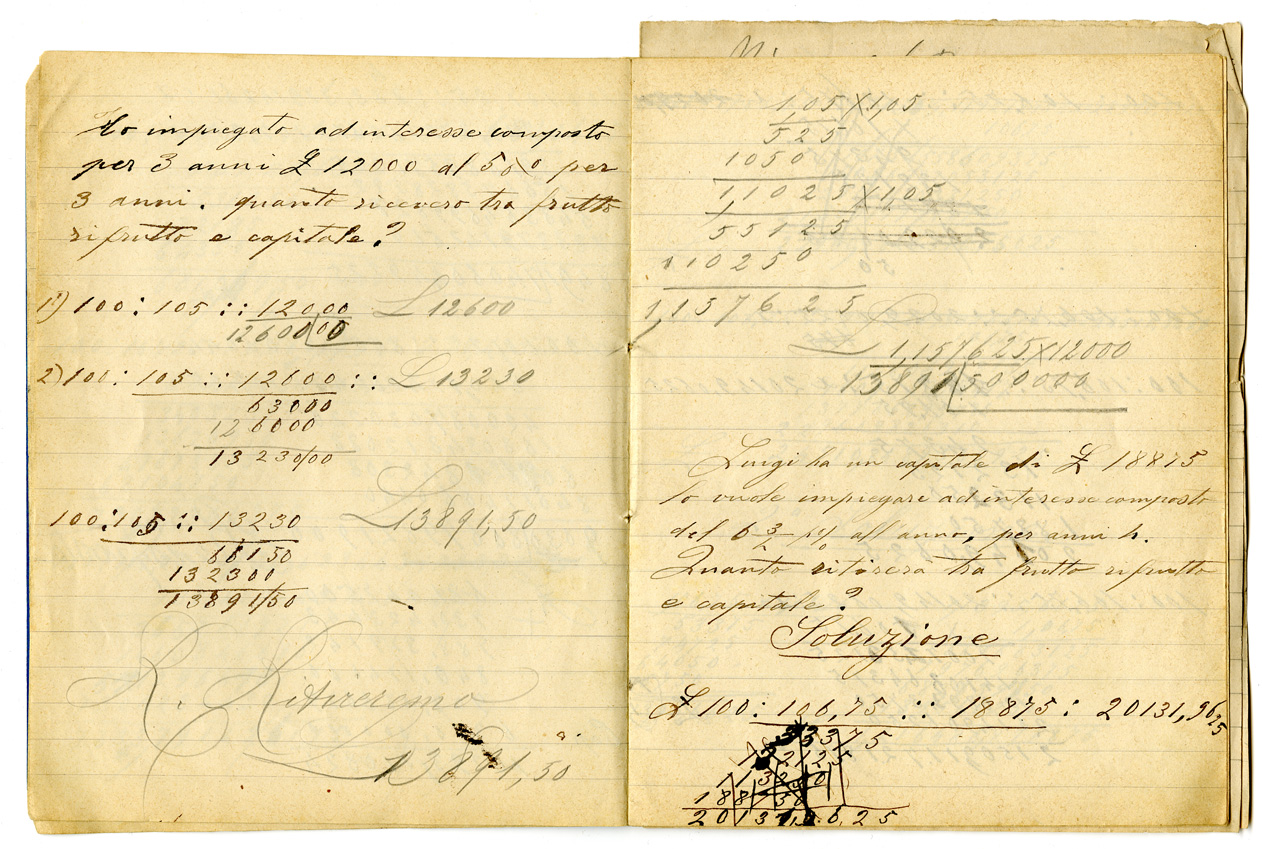 Ho impiegato ad interesse composto
per 3 anni £ 12000 al 5 0/0 per
3 anni. quanto ricevero tra frutto
rifrutto e capitale?
1º) 100 : 105 :: 12000 £ 12600
12600|00|0
2) 100 : 105 :: 12600 :: £ 13230
63000
126000
13230/00
100:105 :: 13230 £ 13891,50
66150
132300
13891/50
R. Ritireremo
£ 13891,50
1,05 X 1,05
525
1050
1,1025 X 1,05
55125
110250
1,157625
1,157625 X 12000
13891|500000
Luigi ha un capitale di £ 18875
lo vuole impiegare ad interesse composto
del 6 3/2 p% all'anno, per anni 4.
Quanto ritirerà tra frutto rifrutto
e capitale?
Soluzione
£ 100 : 106,75 :: 18875 : 20131,9625